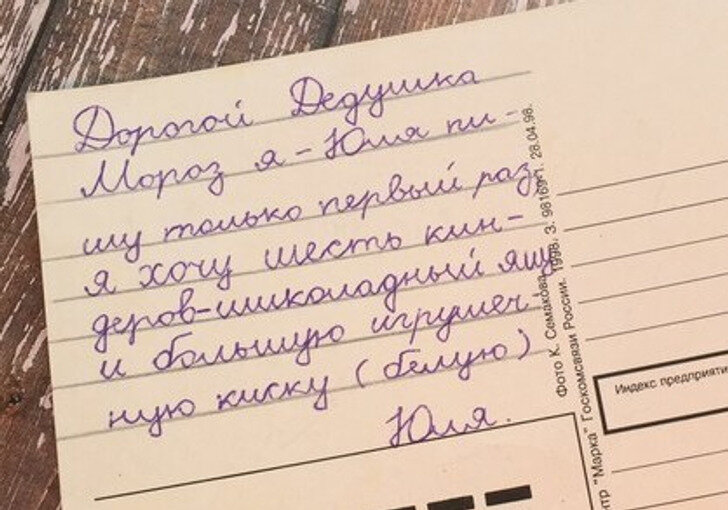 Дорогой Дедушка
Мороз я - Юля пи-
шу только первый раз,
я хочу шесть кин-
деров-шиколадный яиц
и большую игрушеч-
ную киску (белую)
Юля.
Фото К. Семакова 1998. З. 98169-1. 28.04.98.
"Марка" Госкомсвязи России.
Индекс предприяти